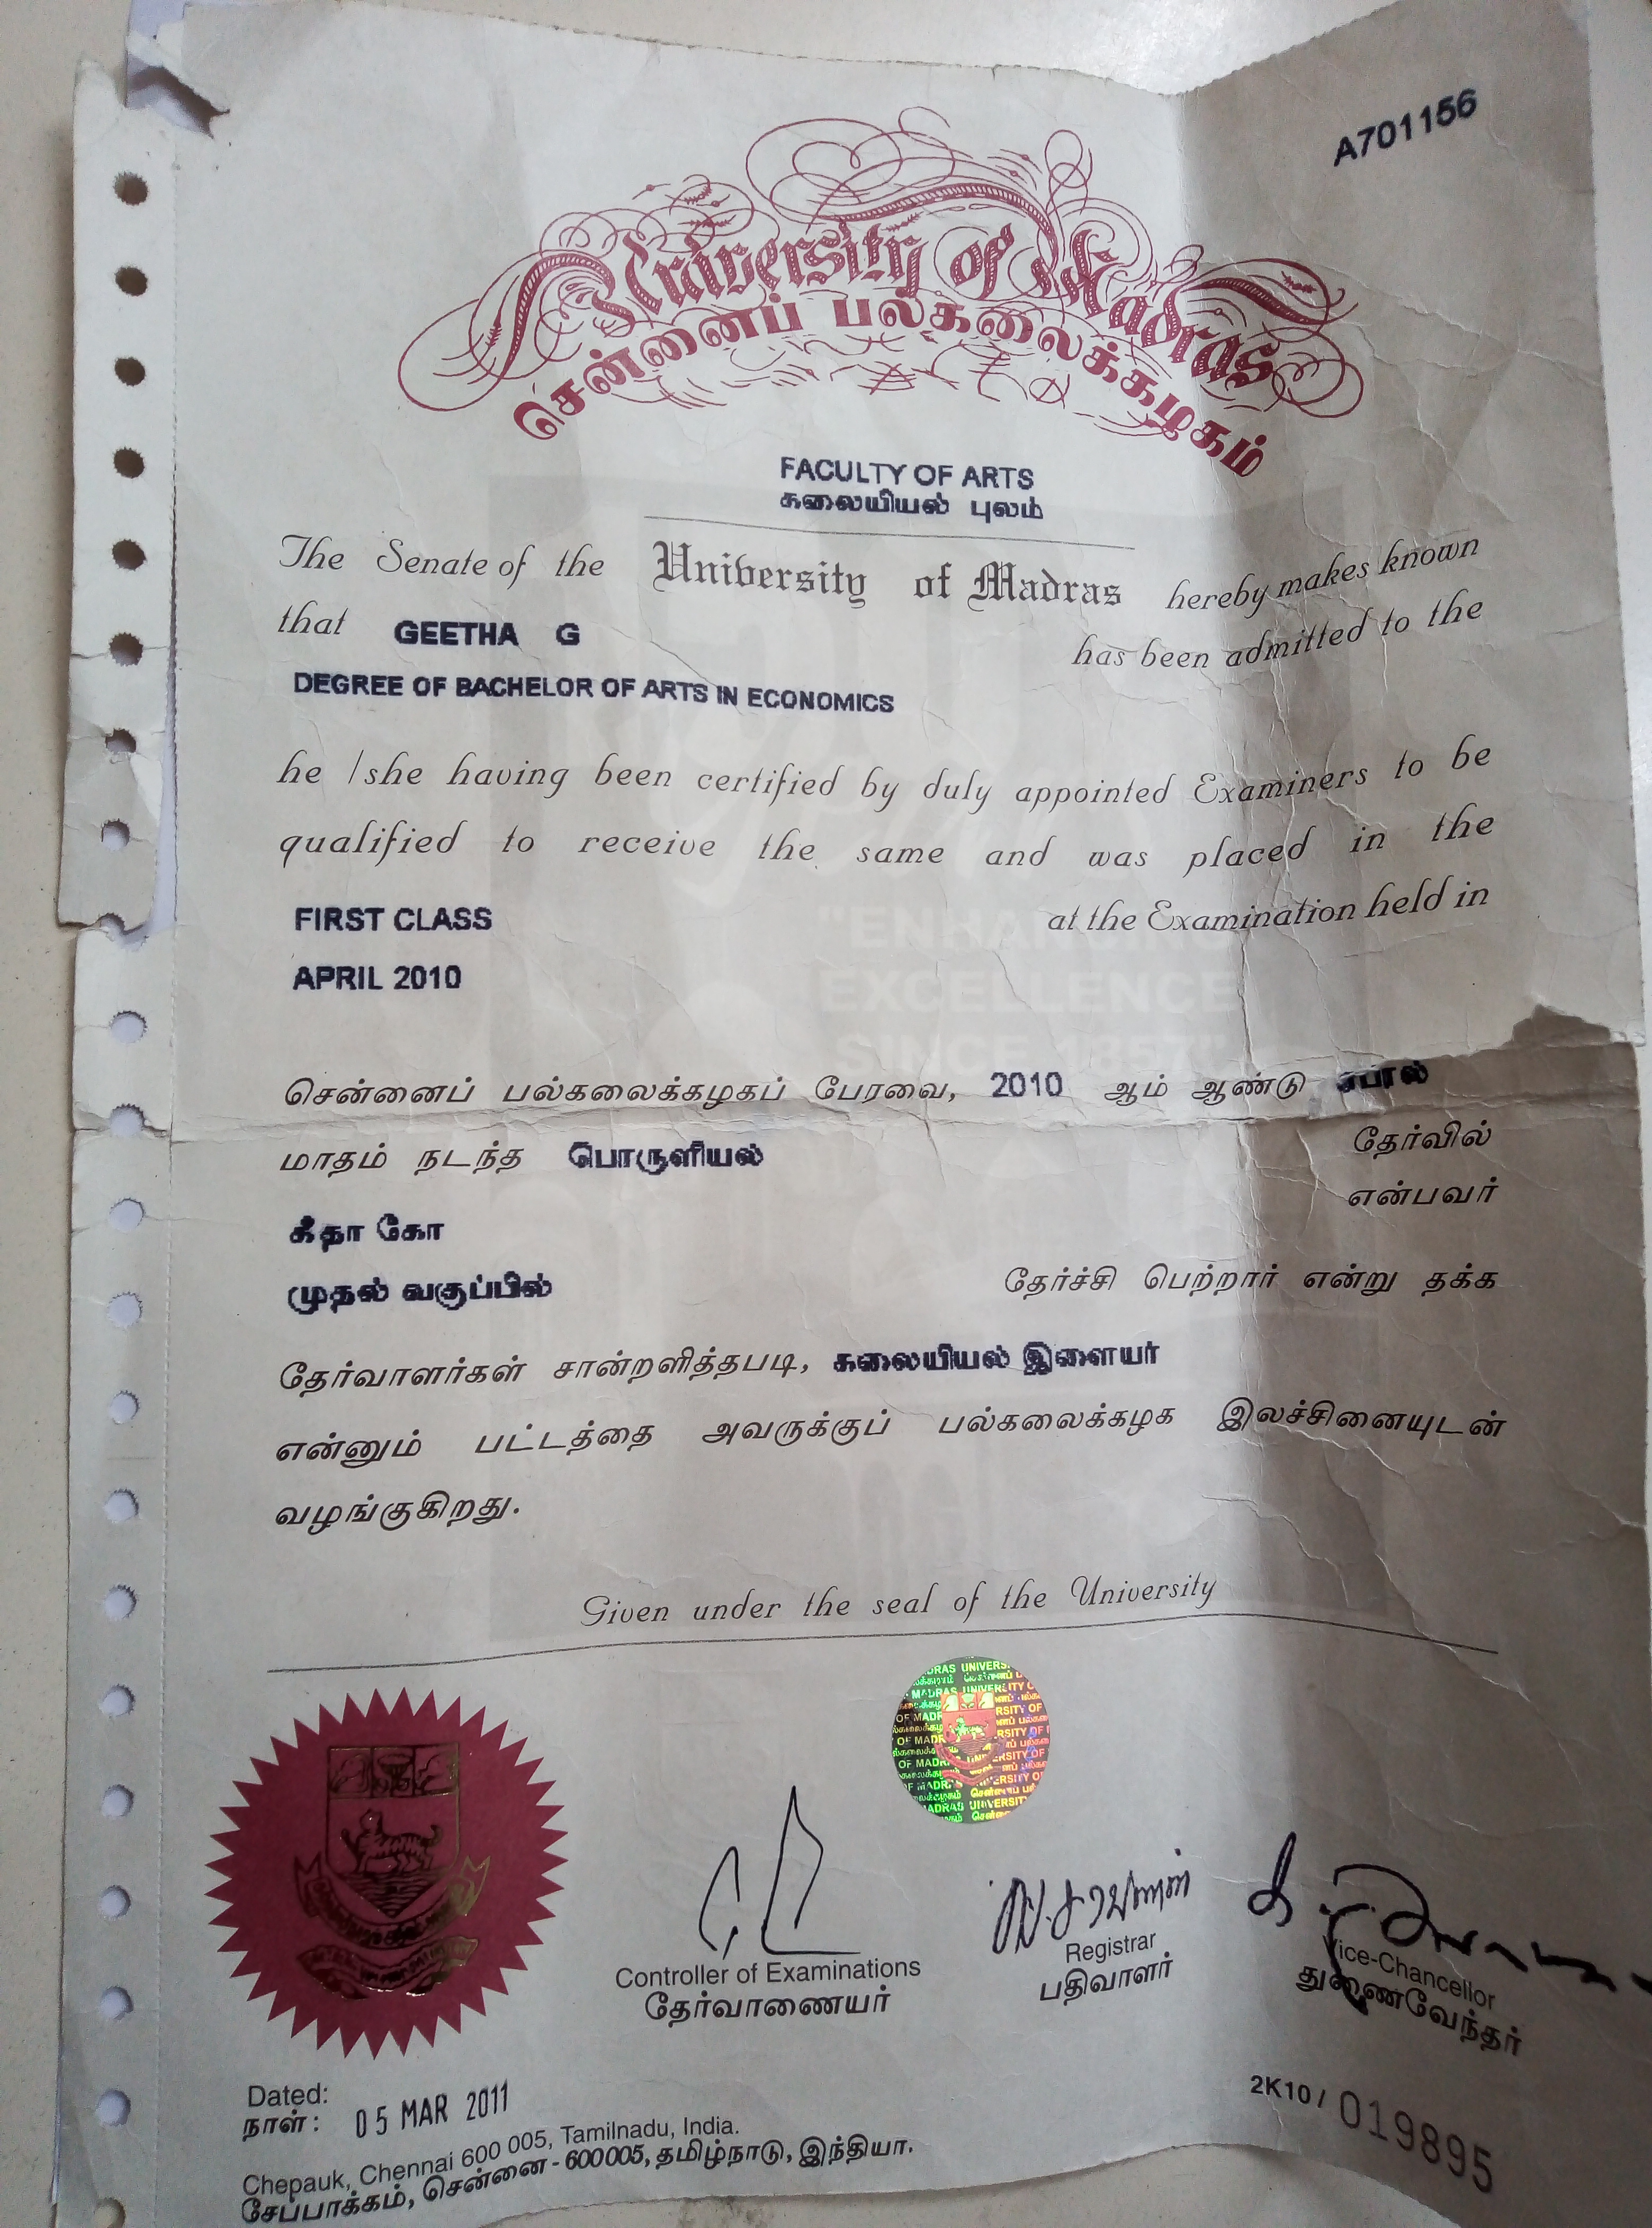 A701156
University of Madras
சென்னைப் பல்கலைக்கழகம்
FACULTY OF ARTS
கலையியல் புலம்
The Senate of the University of Madras hereby makes known
that GEETHA G has been admitted to the
DEGREE OF BACHELOR OF ARTS IN ECONOMICS
he / she having been certified by duly appointed Examiners to be
qualified to receive the same and was placed in the
FIRST CLASS at the Examination held in
APRIL 2010
"ENHANCING
EXCELLENCE
SINCE 1857"
சென்னைப் பல்கலைக்கழகப் பேரவை, 2010 ஆம் ஆண்டு
மாதம் நடந்த பொருளியல் தேர்வில்
என்பவர்
கீதா கோ
முதல் வகுப்பில் தேர்ச்சி பெற்றார் என்று தக்க
தேர்வாளர்கள் சான்றளித்தபடி, கலையியல் இளையர்
என்னும் பட்டத்தை அவருக்குப் பல்கலைக்கழக இலச்சினையுடன்
வழங்குகிறது.
Given under the seal of the University
Controller of Examinations
தேர்வாணையர்
Registrar
பதிவாளர்
Vice-Chancellor
துணைவேந்தர்
Dated:
நாள் : 05 MAR 2011
2K10 / 019895
Chepauk, Chennai 600 005, Tamilnadu, India.
சேப்பாக்கம், சென்னை - 600005, தமிழ்நாடு, இந்தியா.